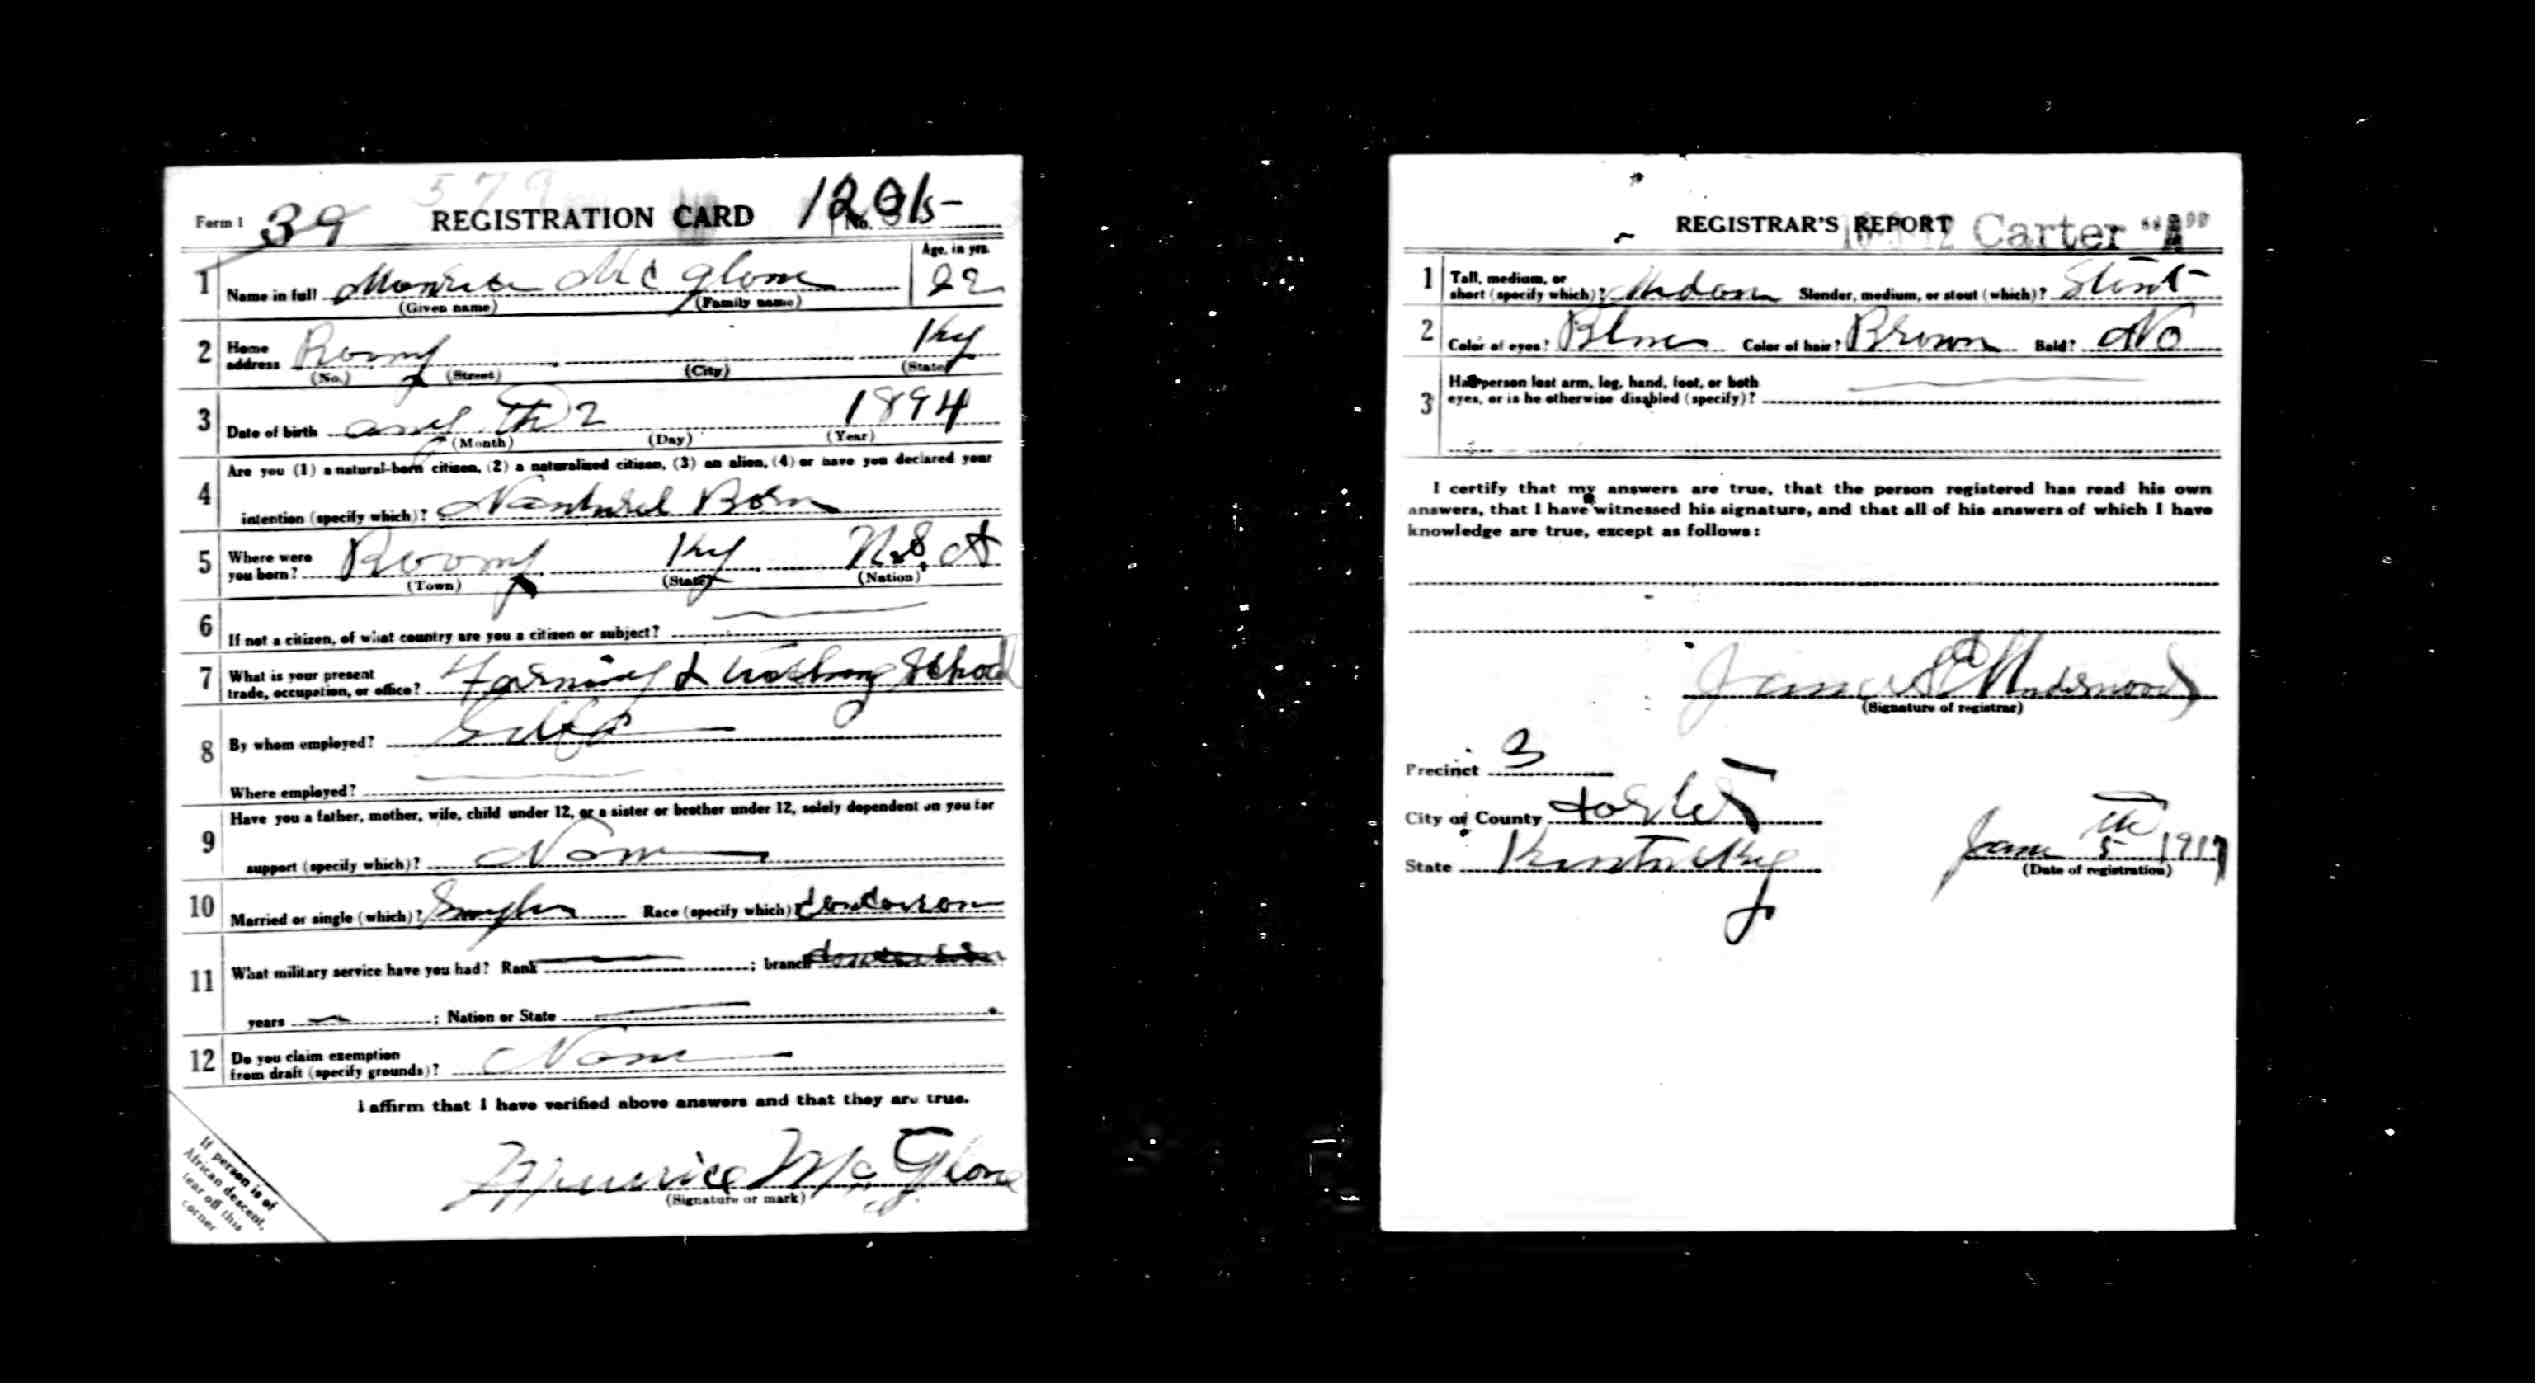 Form 1 39 REGISTRATION CARD No.
1 Name in full McGlone Age, in yrs. 22
(Given name) (Family name)
2 Home address Ky
(No.) (Street) (City) (State)
3 Date of birth 2 1894
(Month) (Day) (Year)
Are you (1) a natural-born citizen, (2) a naturalized citizen, (3) an alien, (4) or have you declared your
4 intention (specify which)? Born
5 Where were you born? Ky
(Town) (State) (Nation)
6 If not a citizen, of what country are you a citizen or subject?
7 What is your present trade, occupation, or office? Farming & School
8 By whom employed? Self
Where employed?
Have you a father, mother, wife, child under 12, or a sister or brother under 12, solely dependent on you for
9 support (specify which)?
10 Married or single (which)? Race (specify which)?
11 What military service have you had? Rank ; branch
years ; Nation or State
12 Do you claim exemption from draft (specify grounds)?
I affirm that I have verified above answers and that they are true.
Maurice McGlone
(Signature or mark)
If person is of
African descent,
tear off this
corner
REGISTRAR'S REPORT Carter "A"
1 Tall, medium, or short (specify which)? Slender, medium, or stout (which)? Stout
2 Color of eyes? Color of hair? Brown Bald? No
Has person lost arm, leg, hand, foot, or both
3 eyes, or is he otherwise disabled (specify)?
I certify that my answers are true, that the person registered has read his own
answers, that I have witnessed his signature, and that all of his answers of which I have
knowledge are true, except as follows:
Underwood
(Signature of registrar)
Precinct 3
City or County
State Kentucky 5th 1917
(Date of registration)